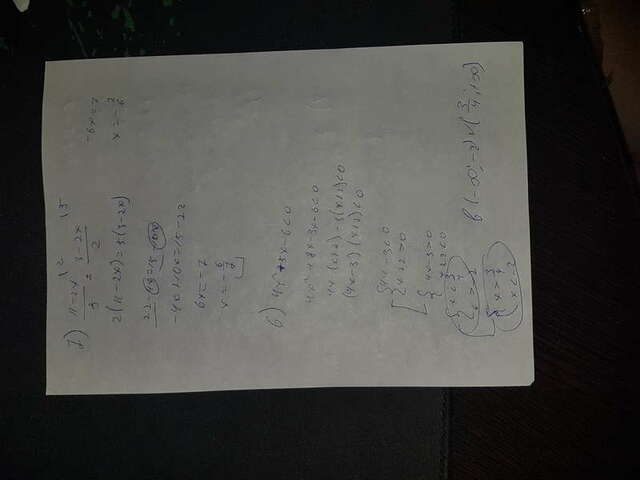 \2 \5
1) (11-2x)/5 = (3-2x)/2
2(11-2x)=5(3-2x)
22-4x=15-10x
-4x+10x=15-22
6x=-7
x=-6/7
-6x=7
x=-7/6
6) 4x²+5x-6<0
4x²+8x-3x-6<0
4x(x+2)-3(x+2)<0
(4x-3)(x+2)<0
4x-3<0
x+2>0
4x-3>0
x+2<0
x<3/4
x>-2
x>3/4
x<-2
(-∞;-2)∪(3/4;+∞)